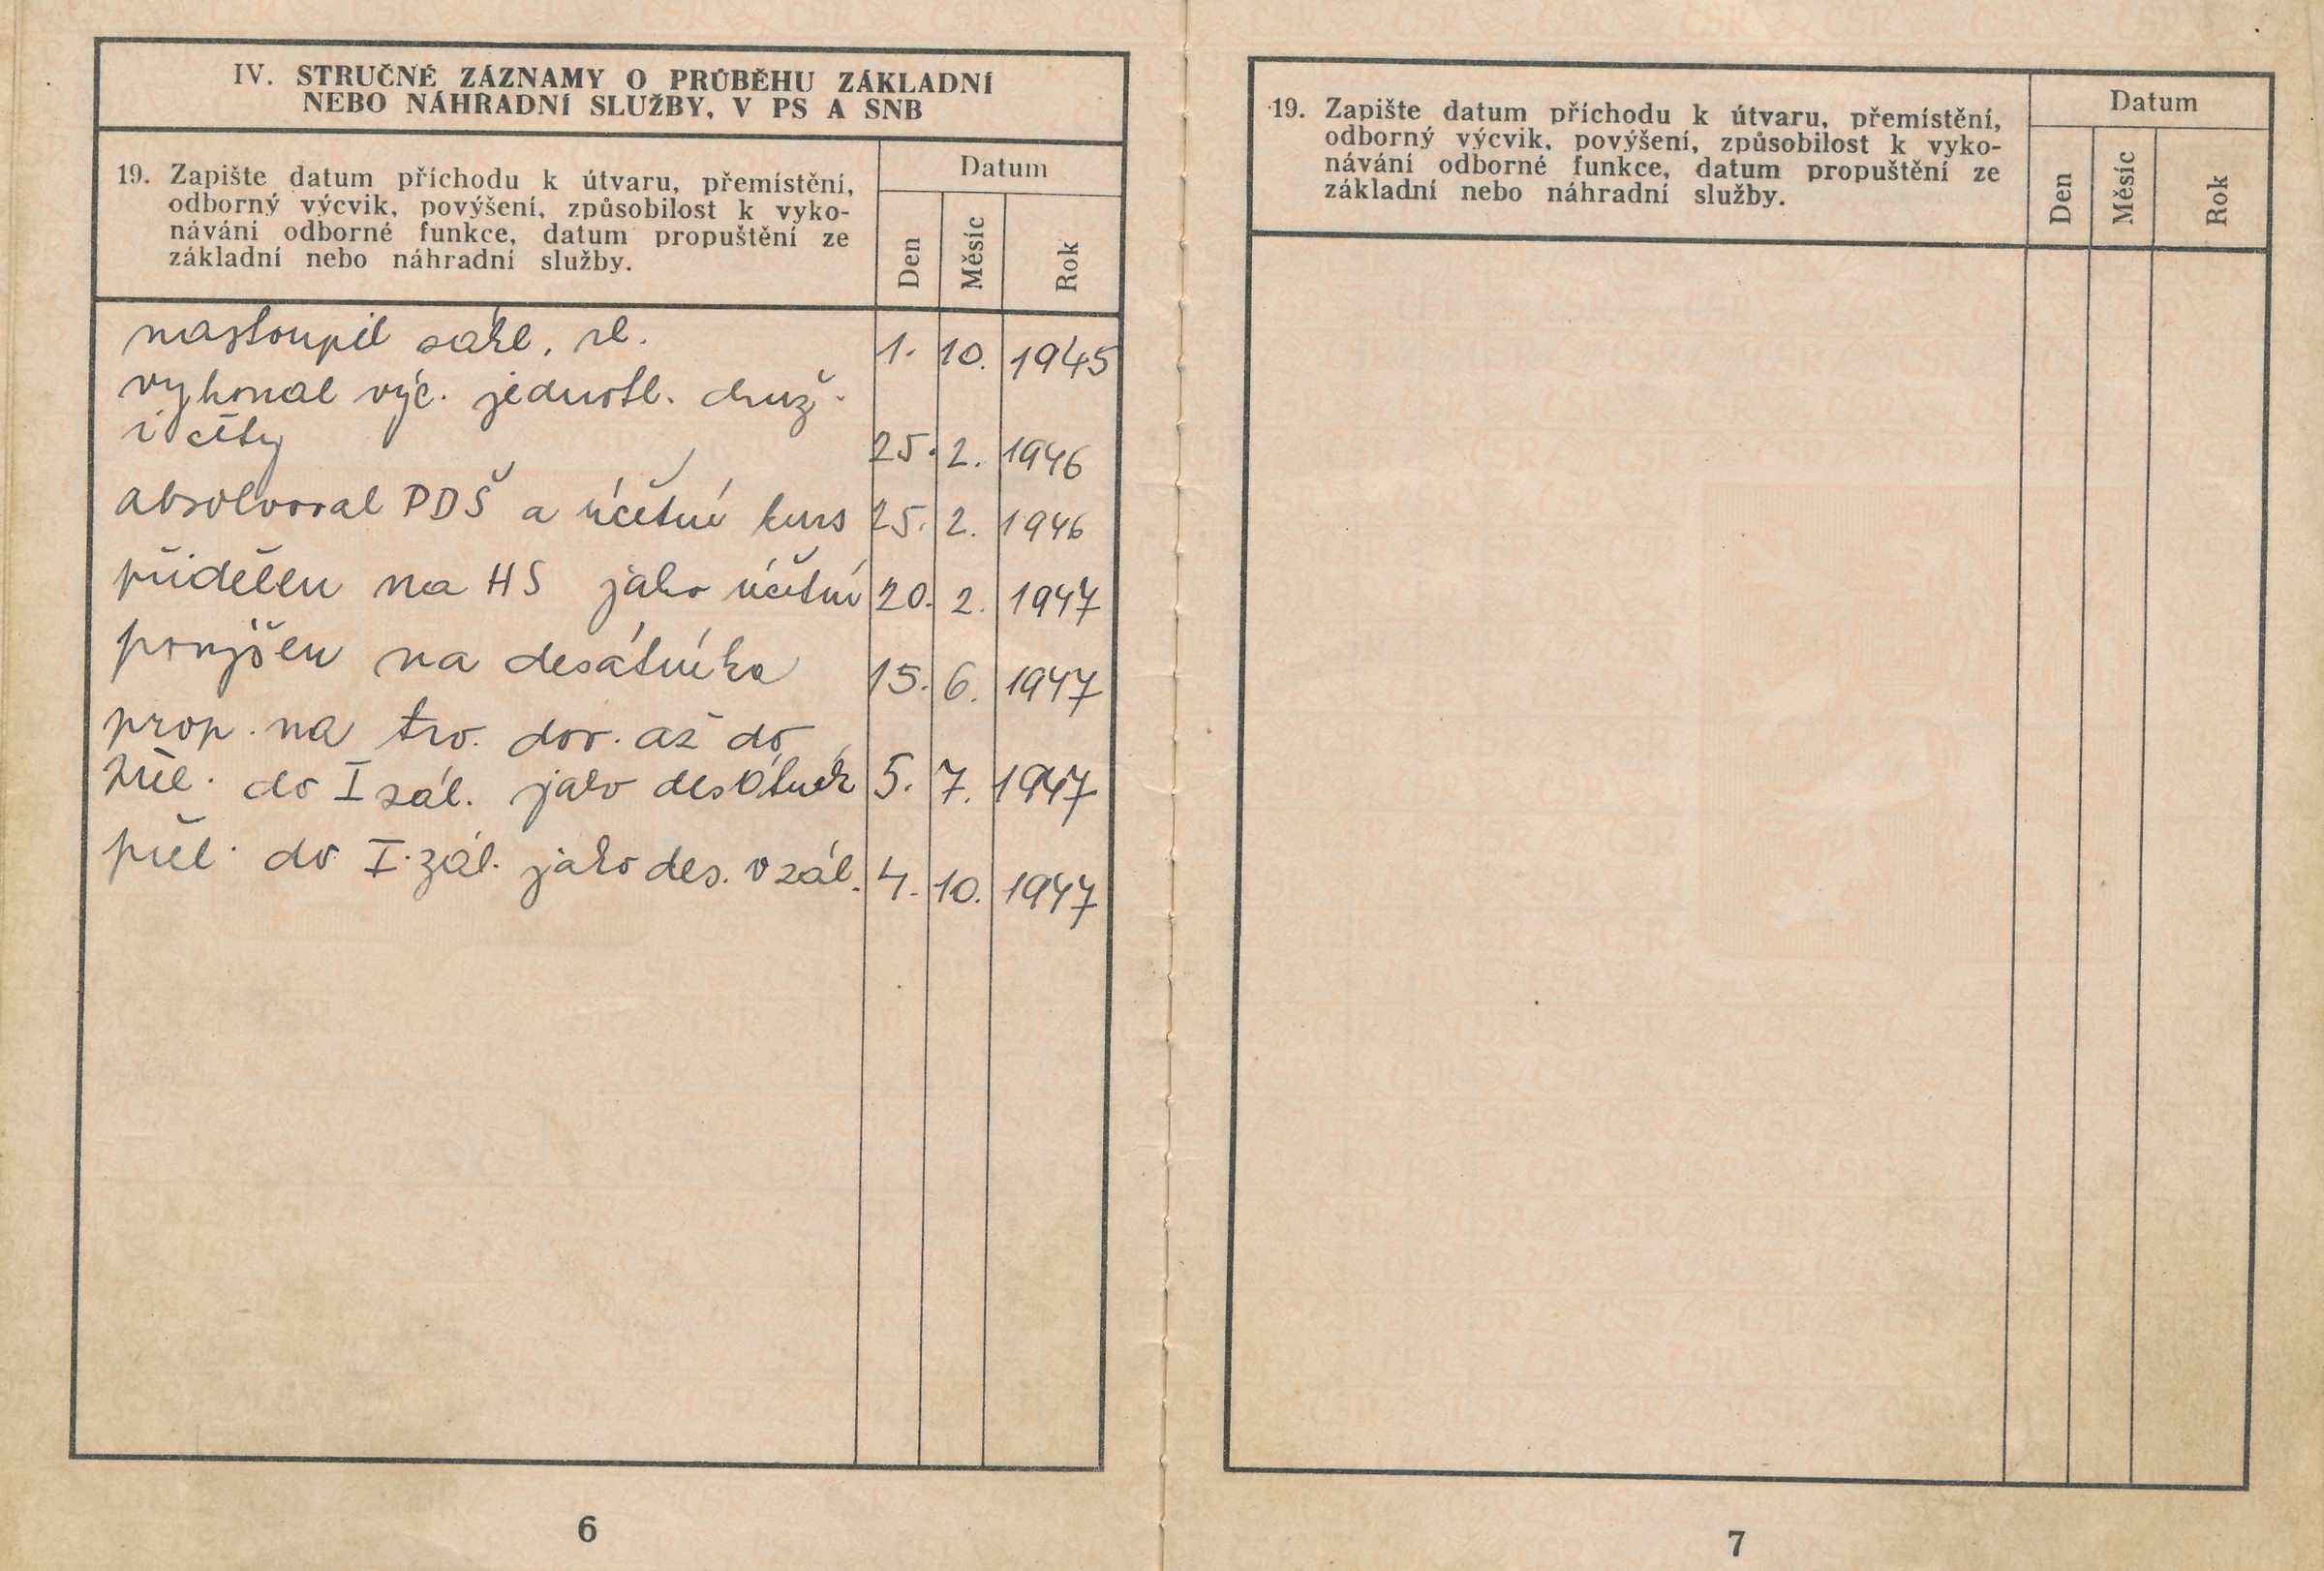 IV. STRUČNÉ ZÁZNAMY O PRŮBĚHU ZÁKLADNÍ
NEBO NÁHRADNÍ SLUŽBY, V PS A SNB
19. Zapište datum příchodu k útvaru, přemístění,
odborný výcvik, povýšení, způsobilost k vyko-
návání odborné funkce, datum propuštění ze
základní nebo náhradní služby.
Datum
Den Měsíc Rok
nastoupil zákl. sl. 1. 10. 1945
vykonal výc. jednotl. druž.
i čety 25. 2. 1946
absolvoval PDŠ a účetní kurs 25. 2. 1946
přidělen na HS jako účetní 20. 2. 1947
povýšen na desátníka 15. 6. 1947
prop. na trv. dov. až do
do I zál. jako desátník 5. 7. 1947
přel. do I. zál. jako des. v zál. 4. 10. 1947
6
19. Zapište datum příchodu k útvaru, přemístění,
odborný výcvik, povýšení, způsobilost k vyko-
návání odborné funkce, datum propuštění ze
základní nebo náhradní služby.
Datum
Den Měsíc Rok
7